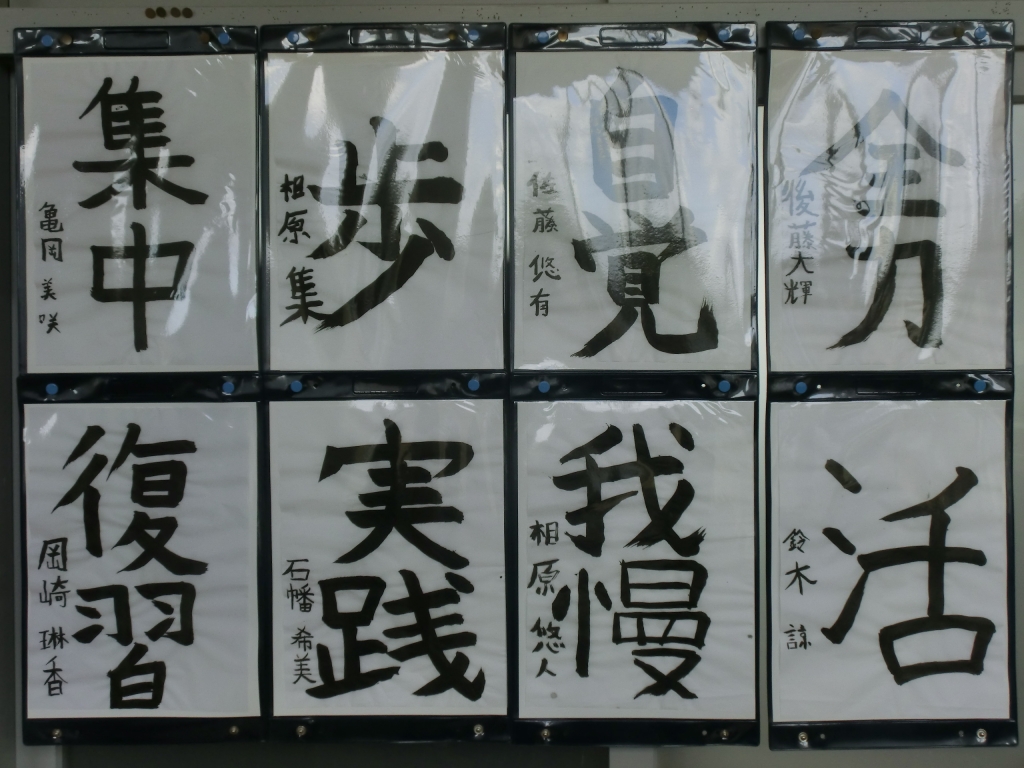 集中
亀岡 美咲
歩
相原 集
自覚
佐藤 悠有
全力
後藤大輝
復習
岡崎 琳香
実践
石幡 希美
我慢
相原 悠人
活
鈴木 諒